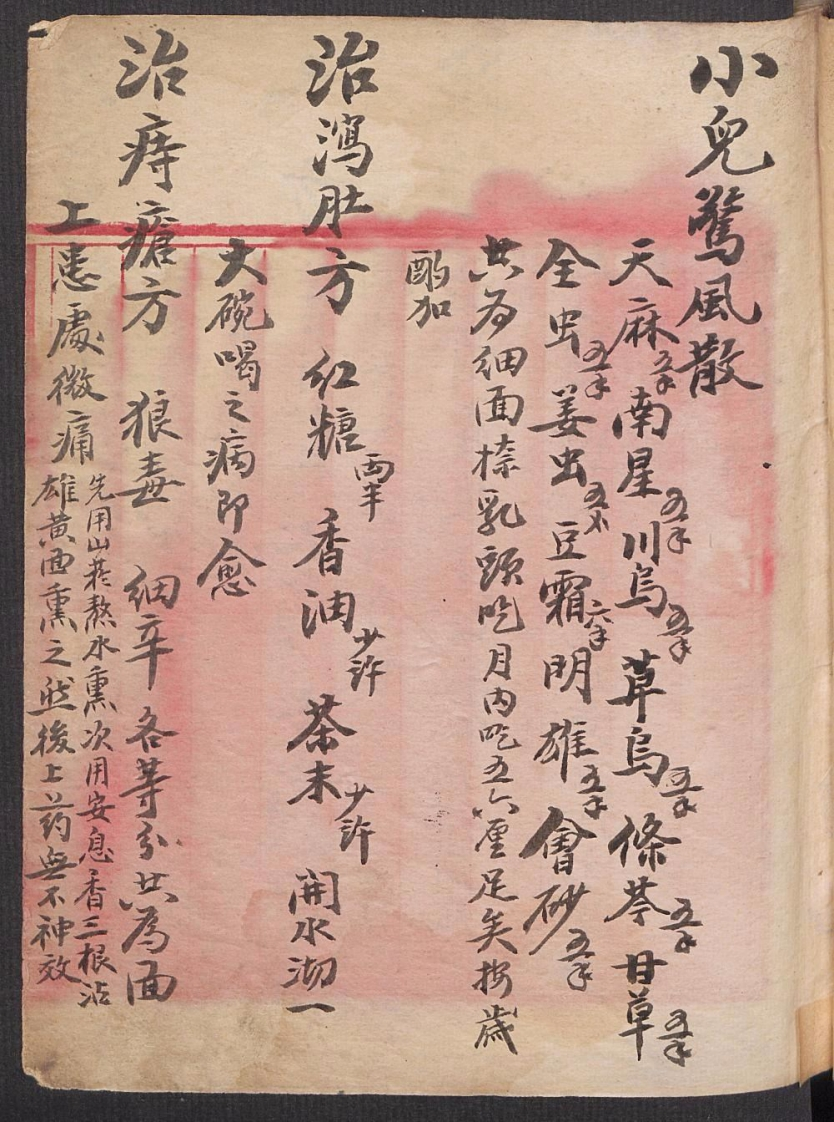 小兒驚風散
天麻五千 南星五千 川烏五千 草烏五千 條芩五千 甘草五千
全虫五千 姜虫五个 豆霜六千 明雄五千 會砂五千
共为细面捺乳頭吃月内吃五六厘足矣按歲
酌加
治瀉肚方 红糖两半 香油少許 茶末少許 開水沏一
大碗喝之病即愈
治痔瘡方 狼毒 细辛 各等分共為面
上患處微痛 先用山葱熬水熏次用安息香三根沾
雄黄面熏之然後上药無不神效